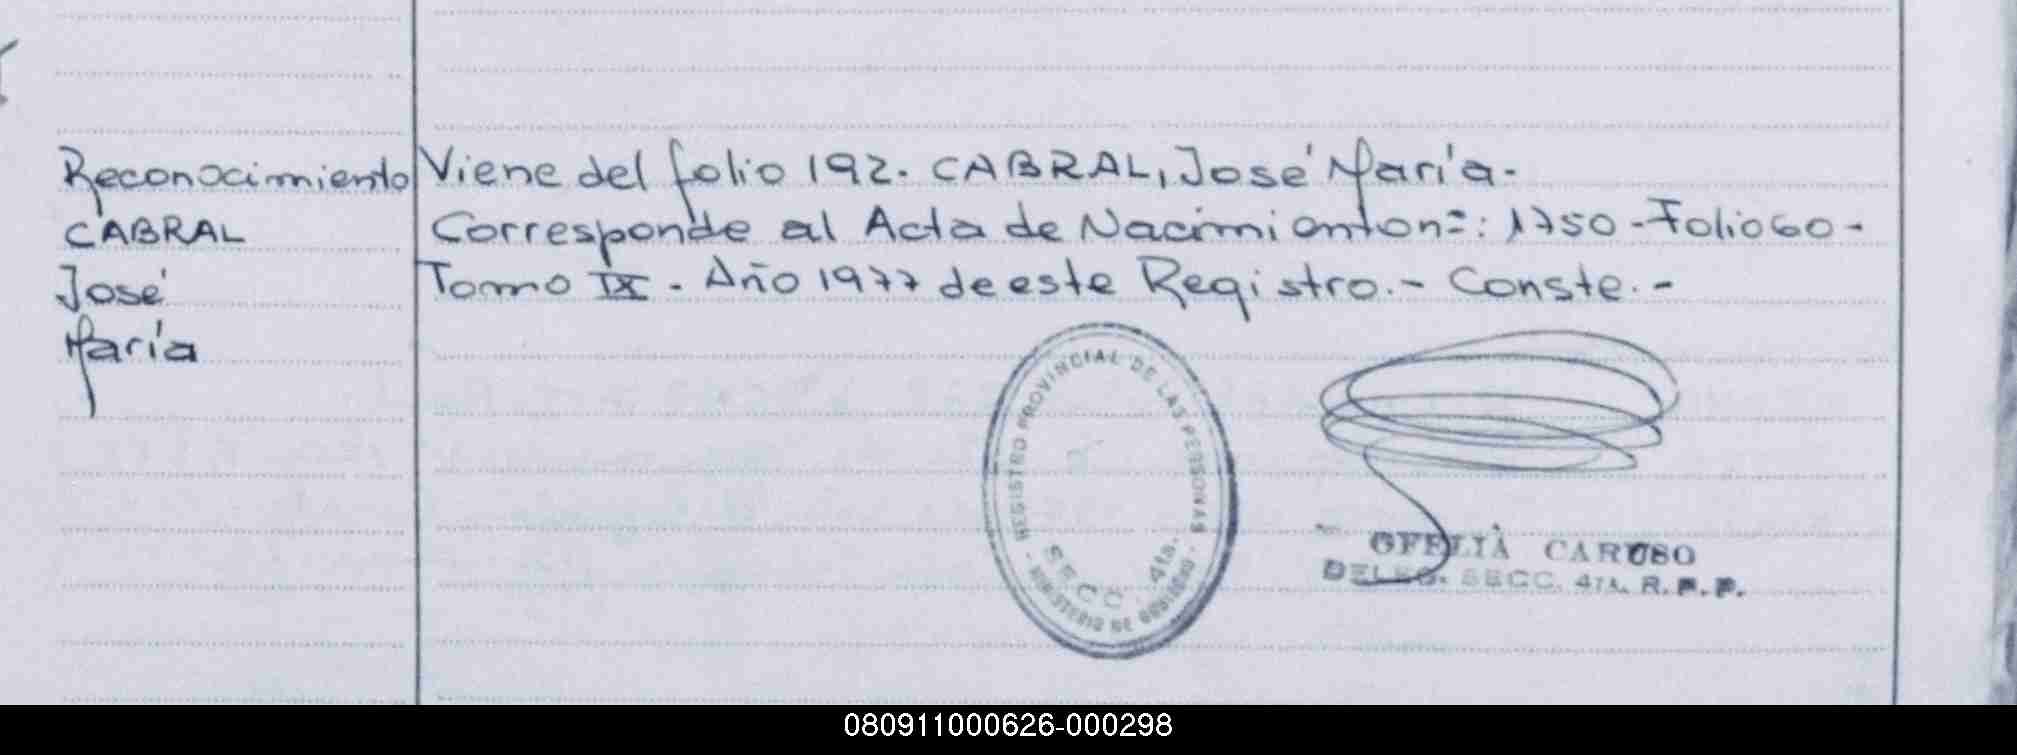 Reconocimiento
CABRAL
José
María
Viene del folio 192. CABRAL, José María.-
Corresponde al Acta de Nacimiento nº: 1750 - Folio 60 -
Tomo IX - Año 1977 de este Registro.- Conste.-
REGISTRO PROVINCIAL DE LAS PERSONAS
SECC. 4ta.
- MINISTERIO DE GOBIERNO -
OFELIA CARUSO
DELEG. SECC. 4TA. R.P.P.
080911000626-000298